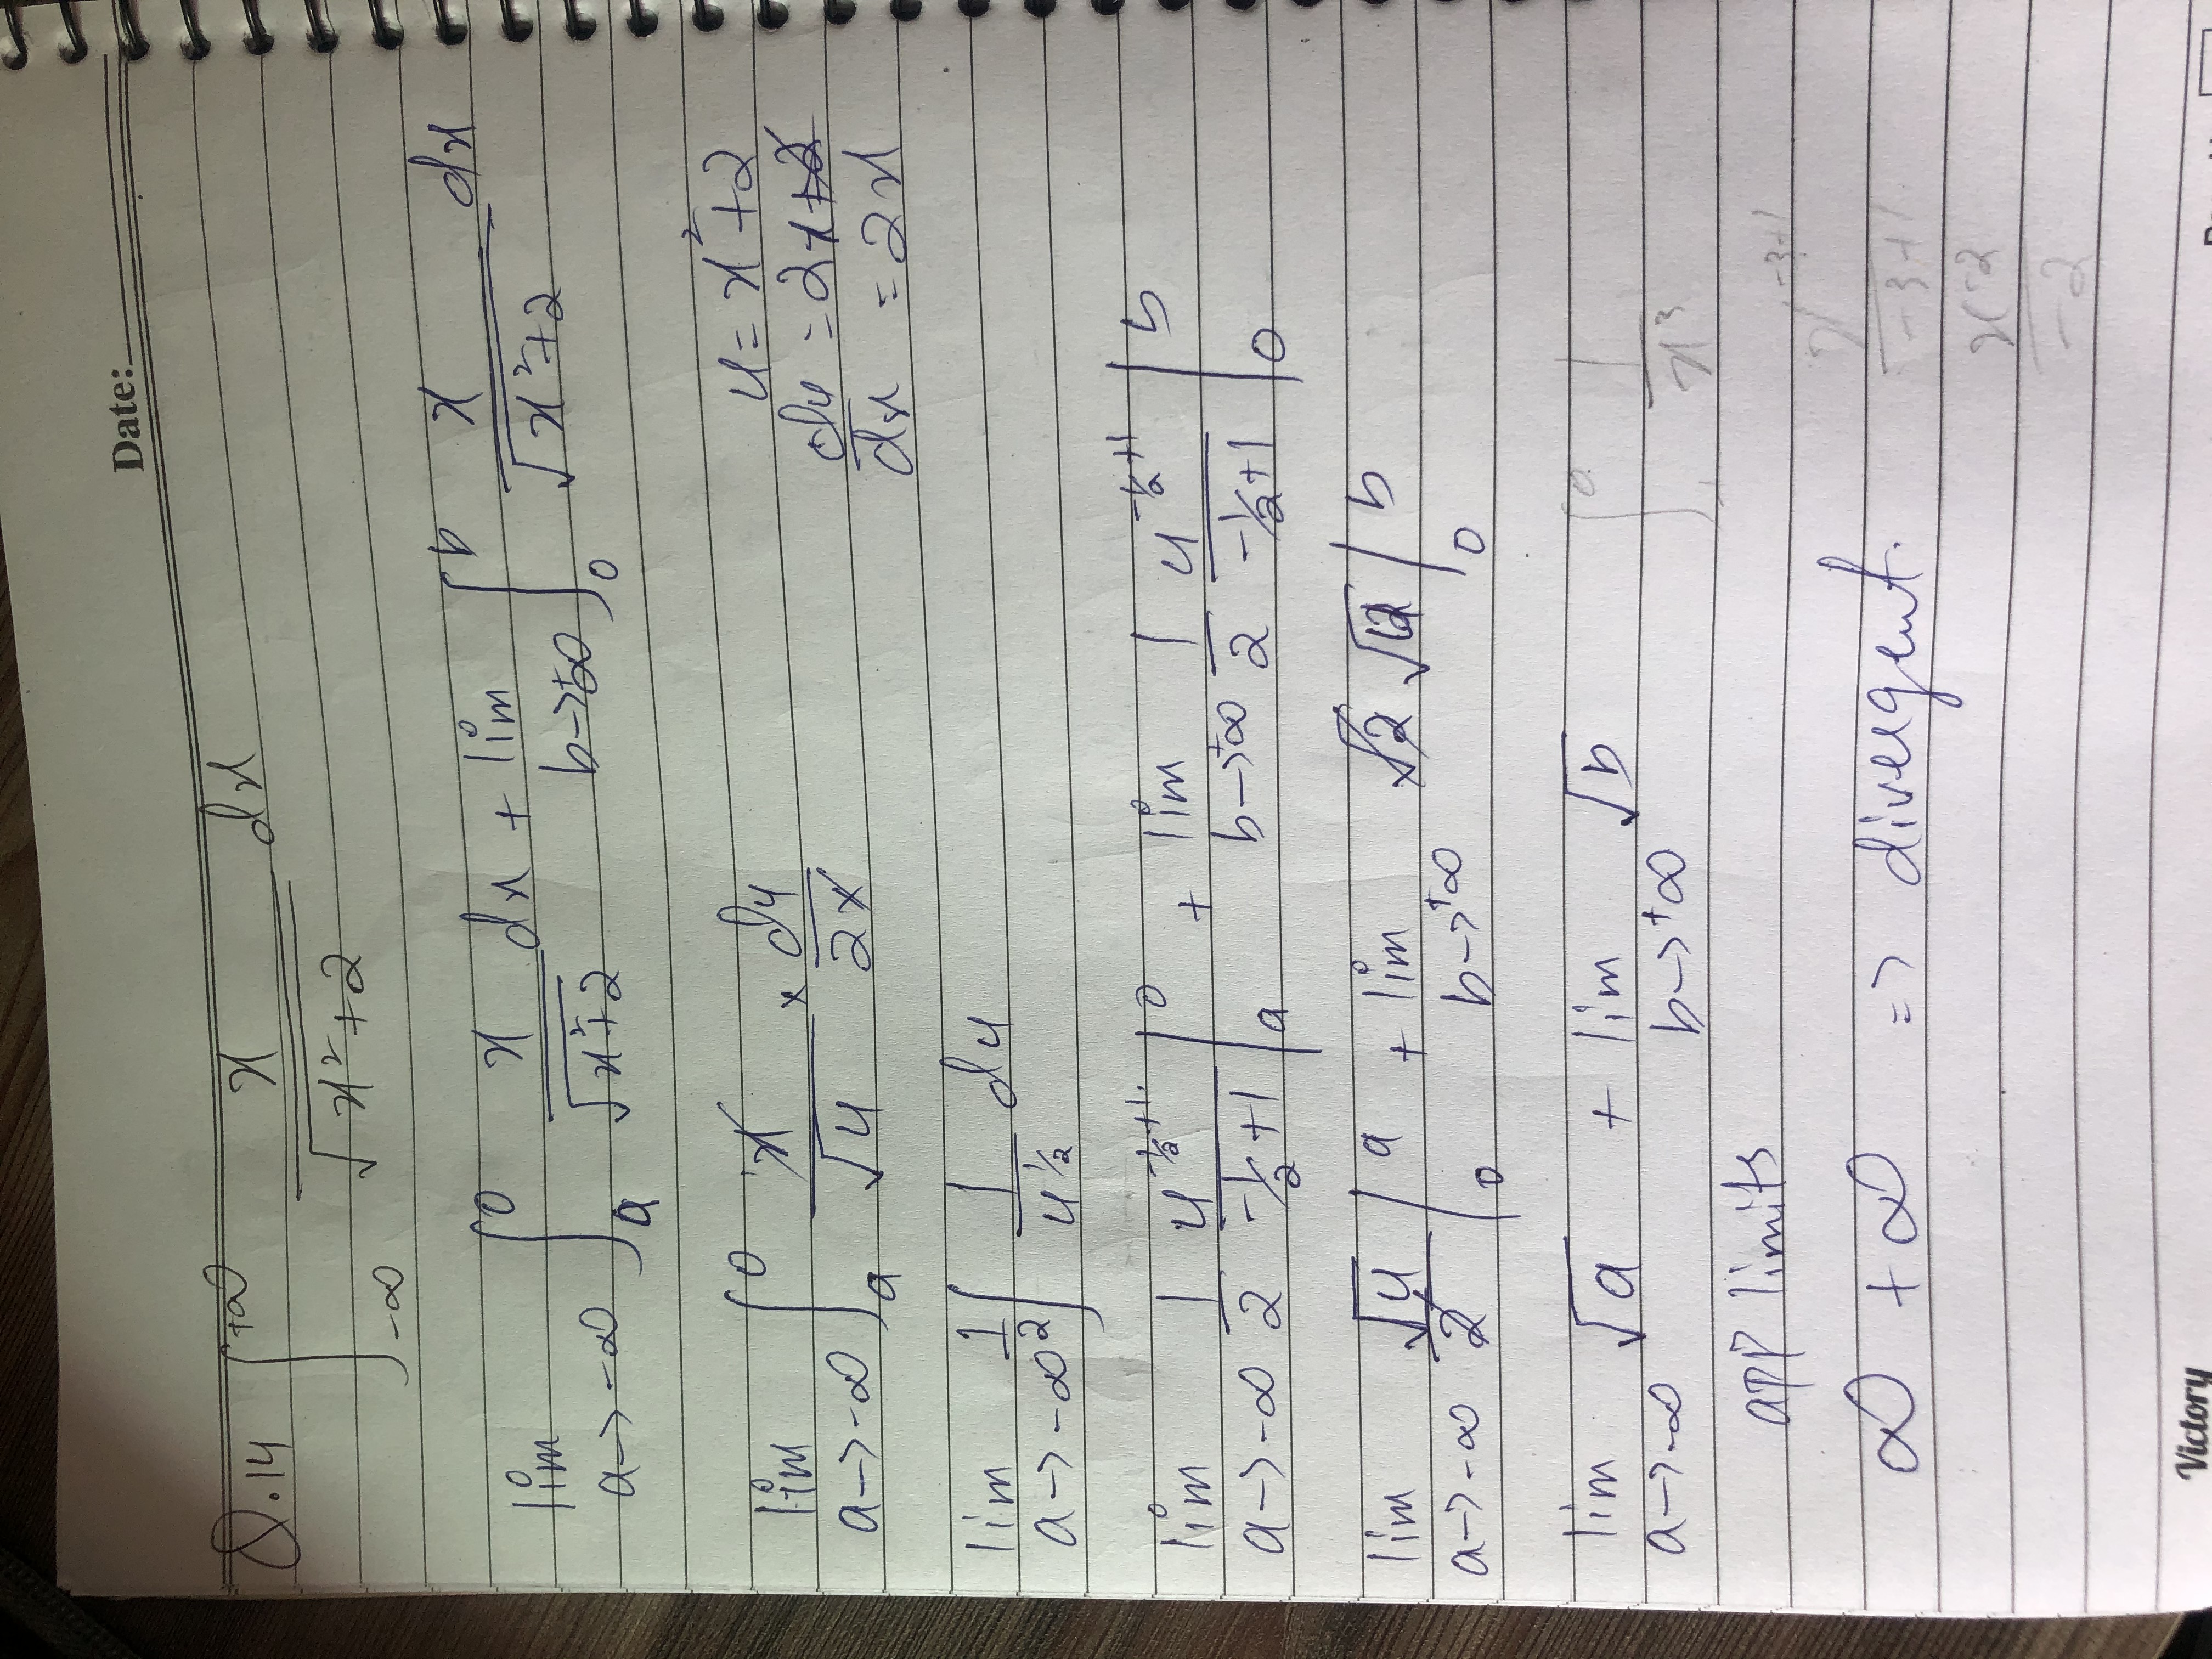 Date:
Q.14 ∫_{-∞}^{+∞} x/√(x²+2) dx
lim a→-∞ ∫_a^0 x/√(x²+2) dx + lim b→+∞ ∫_0^b x/√(x²+2) dx
lim a→-∞ ∫_a^0 x/√u × du/2x
u = x²+2
du/dx = 2x+2
= 2x
lim a→-∞ 1/2 ∫ 1/u^{1/2} du
lim a→-∞ 1/2 u^{-1/2+1}/(-1/2+1) |_a^0 + lim b→+∞ 1/2 u^{-1/2+1}/(-1/2+1) |_0^b
lim a→-∞ √u/2 |_0^a + lim b→+∞ √2 √u |_0^b
lim a→-∞ √a + lim b→+∞ √b
∫ 1/x³
app limits
x^{-3+1}/(-3+1)
∞ + ∞ => divergent.
x^{-2}/(-2)
Victory